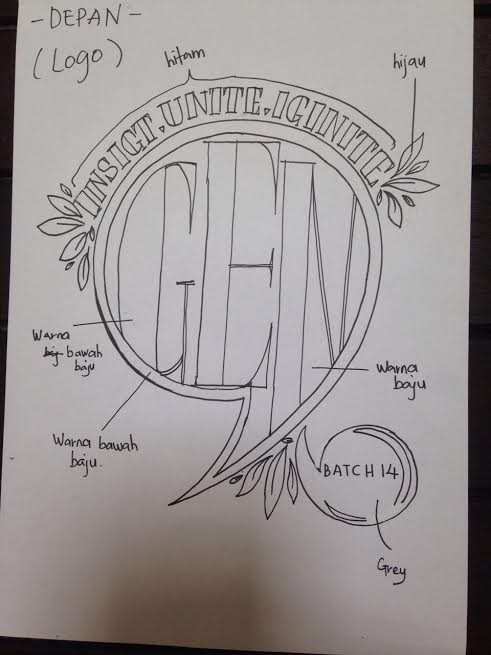 -DEPAN-
(Logo)
hitam
hijau
INSIGT.UNITE.IGINITE
GEN
Warna
bawah
baju
Warna
baju
Warna bawah
baju.
BATCH 14
Grey